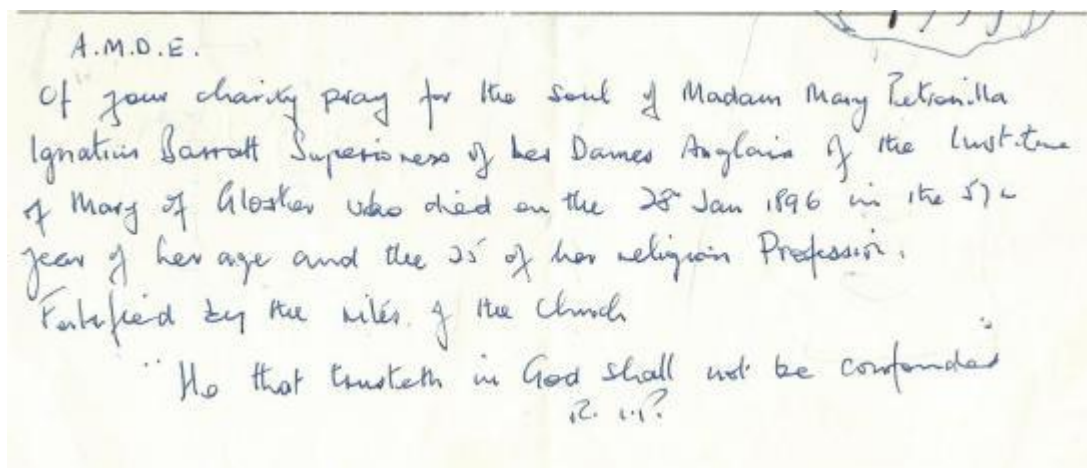 A.M.D.E.
Of your charity pray for the soul of Madam Mary Petronilla
Ignatius Barratt Superioress of Les Dames Anglais of the Institute
of Mary of Gloster who died on the 28 Jan 1896 in the 57
year of her age and the 25 of her religion Profession.
Fortified by the rites of the Church
"He that trusteth in God shall not be confounded"
R.I.P